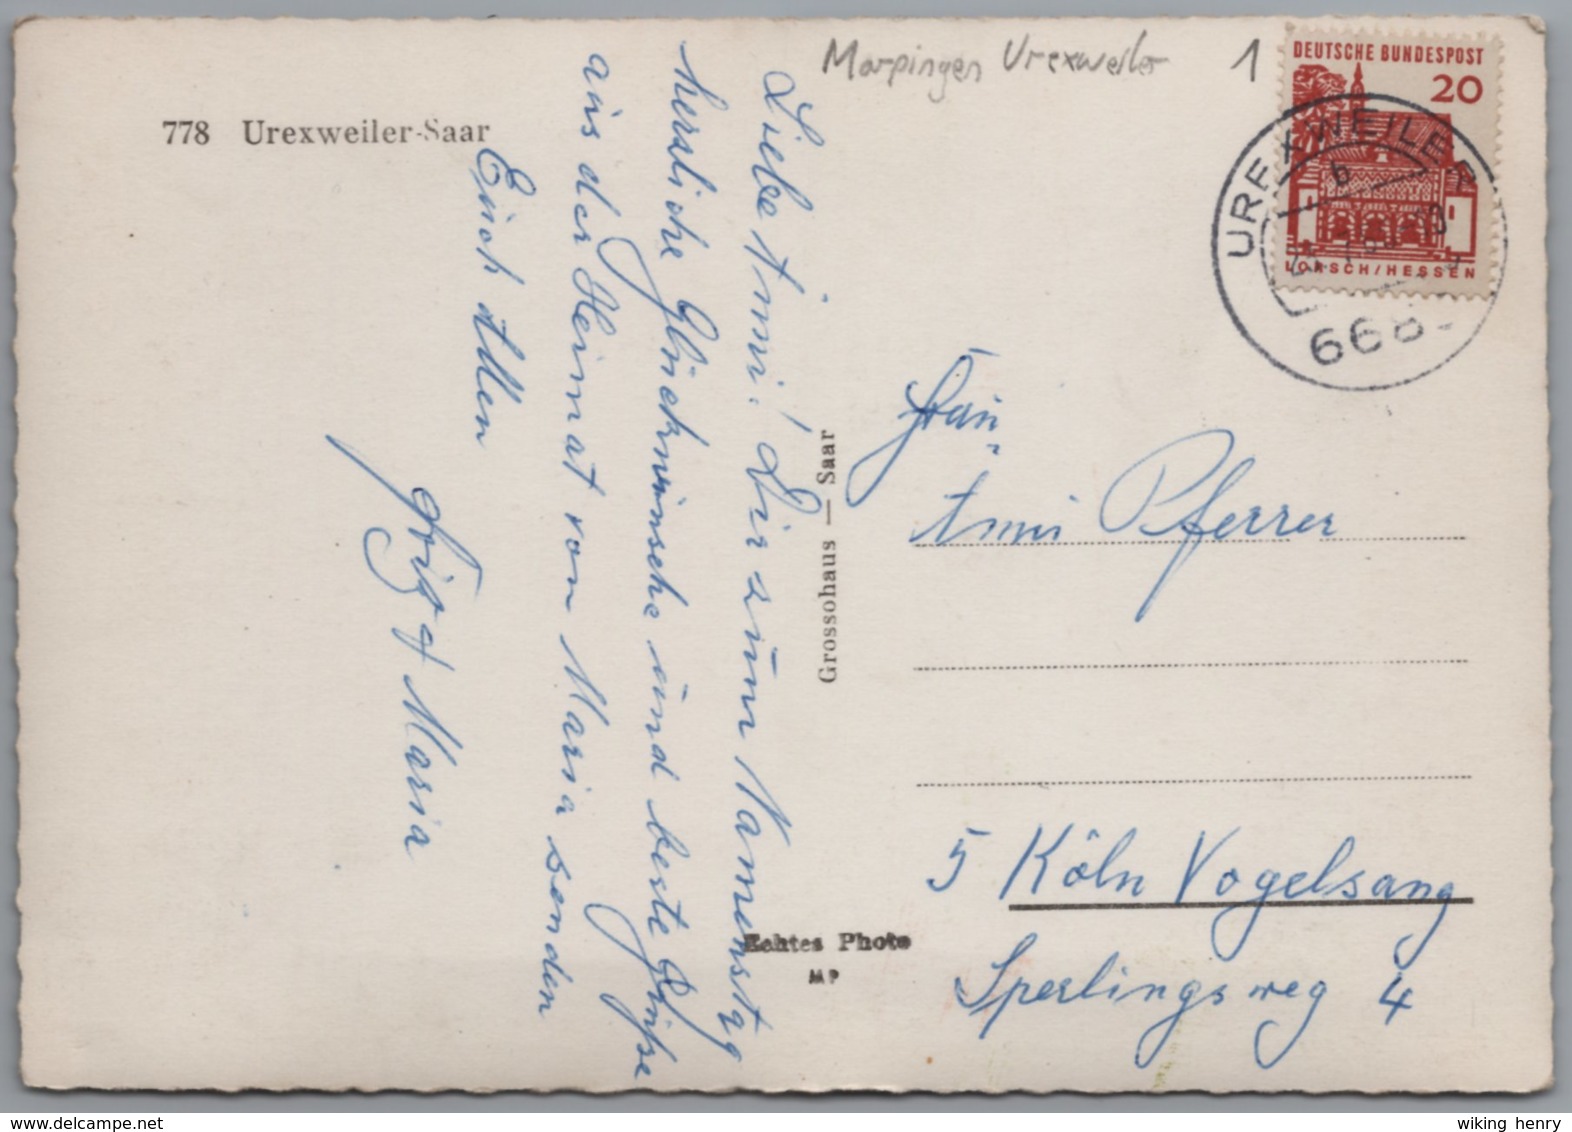 Marpingen Urexweiler 1
778 Urexweiler-Saar
DEUTSCHE BUNDESPOST
20
LORSCH/HESSEN
UREXWEILER
b
668
Liebe Anni! Dir zum Namenstag
herzliche Glückwünsche und beste Grüße
aus der Heimat von Maria senden
Euch Allen
Maria
Grossohaus — Saar
Echtes Photo
MP
Frau
Anni Pferrer
5 Köln Vogelsang
Sperlingsweg 4
wiking henry
delcampe.net